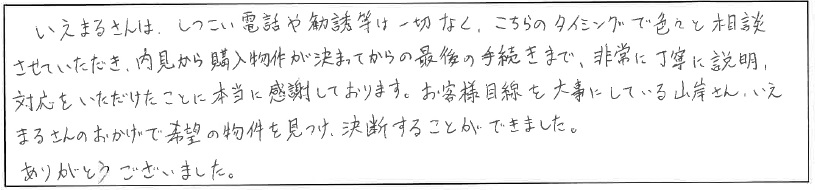 いえまるさんは、しつこい電話や勧誘等は一切なく、こちらのタイミングで色々と相談
させていただき、内見から購入物件が決まってからの最後の手続きまで、非常に丁寧に説明、
対応をいただけたことに本当に感謝しております。お客様目線を大事にしている山岸さん、いえ
まるさんのおかげで希望の物件を見つけ、決断することができました。
ありがとうございました。